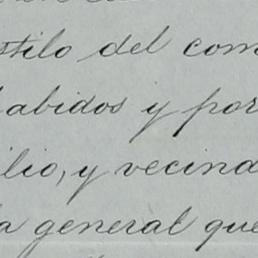 stilo del com
abidos y por
ilio, y vecind
a general que